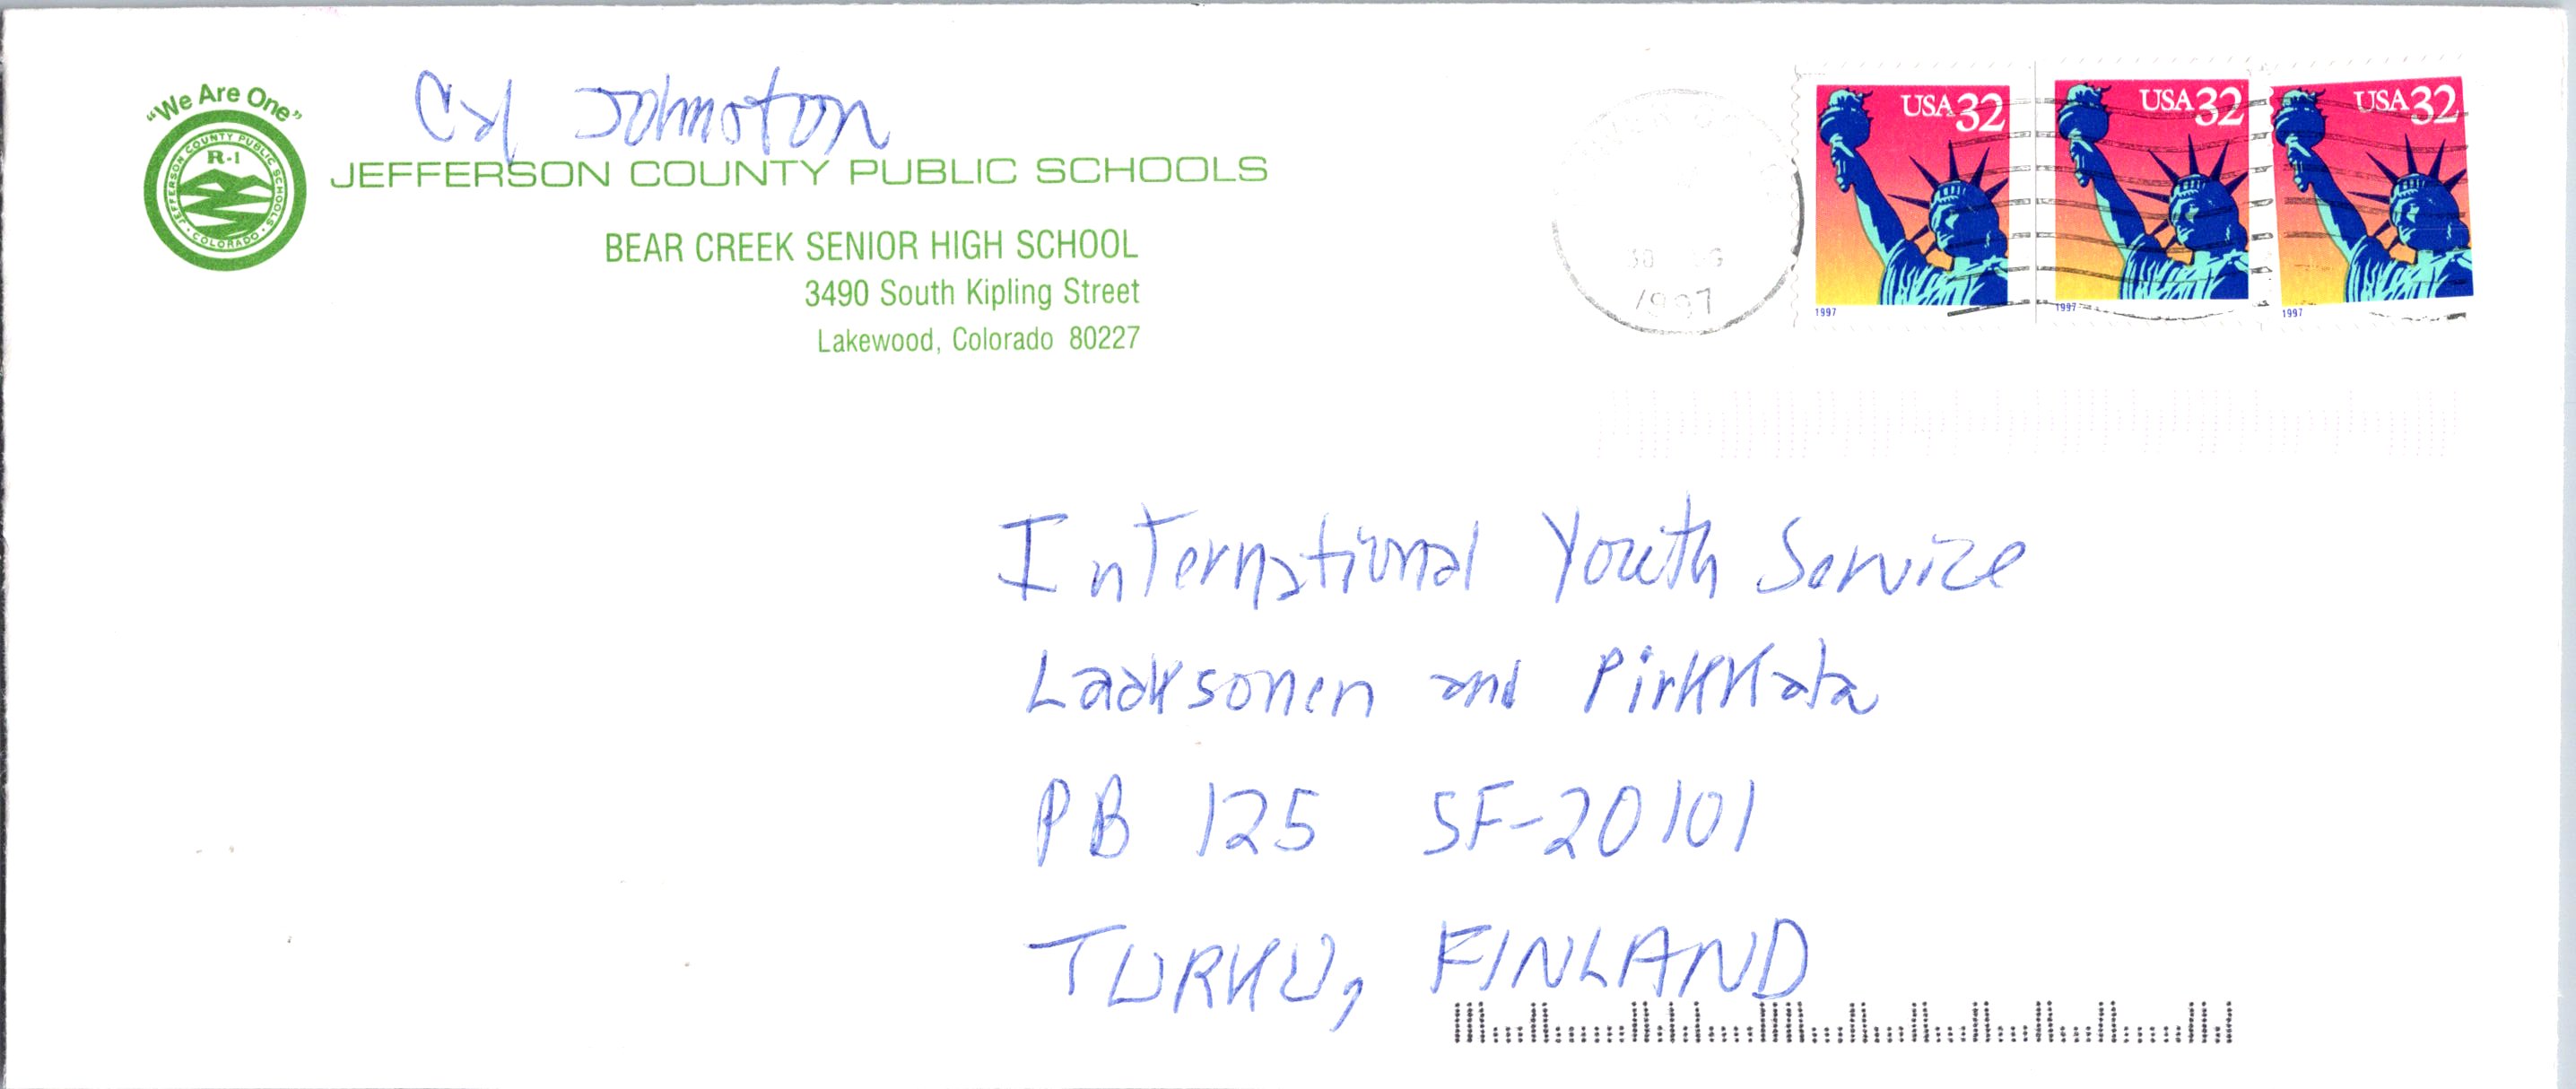 "We Are One"
JEFFERSON COUNTY PUBLIC SCHOOLS
R-1
COLORADO
Johnston
JEFFERSON COUNTY PUBLIC SCHOOLS
BEAR CREEK SENIOR HIGH SCHOOL
3490 South Kipling Street
Lakewood, Colorado 80227
1997
USA 32
1997
USA 32
1997
USA 32
1997
International Youth Service
Laaksonen and Pirkkala
PB 125 SF-20101
TURKU, FINLAND